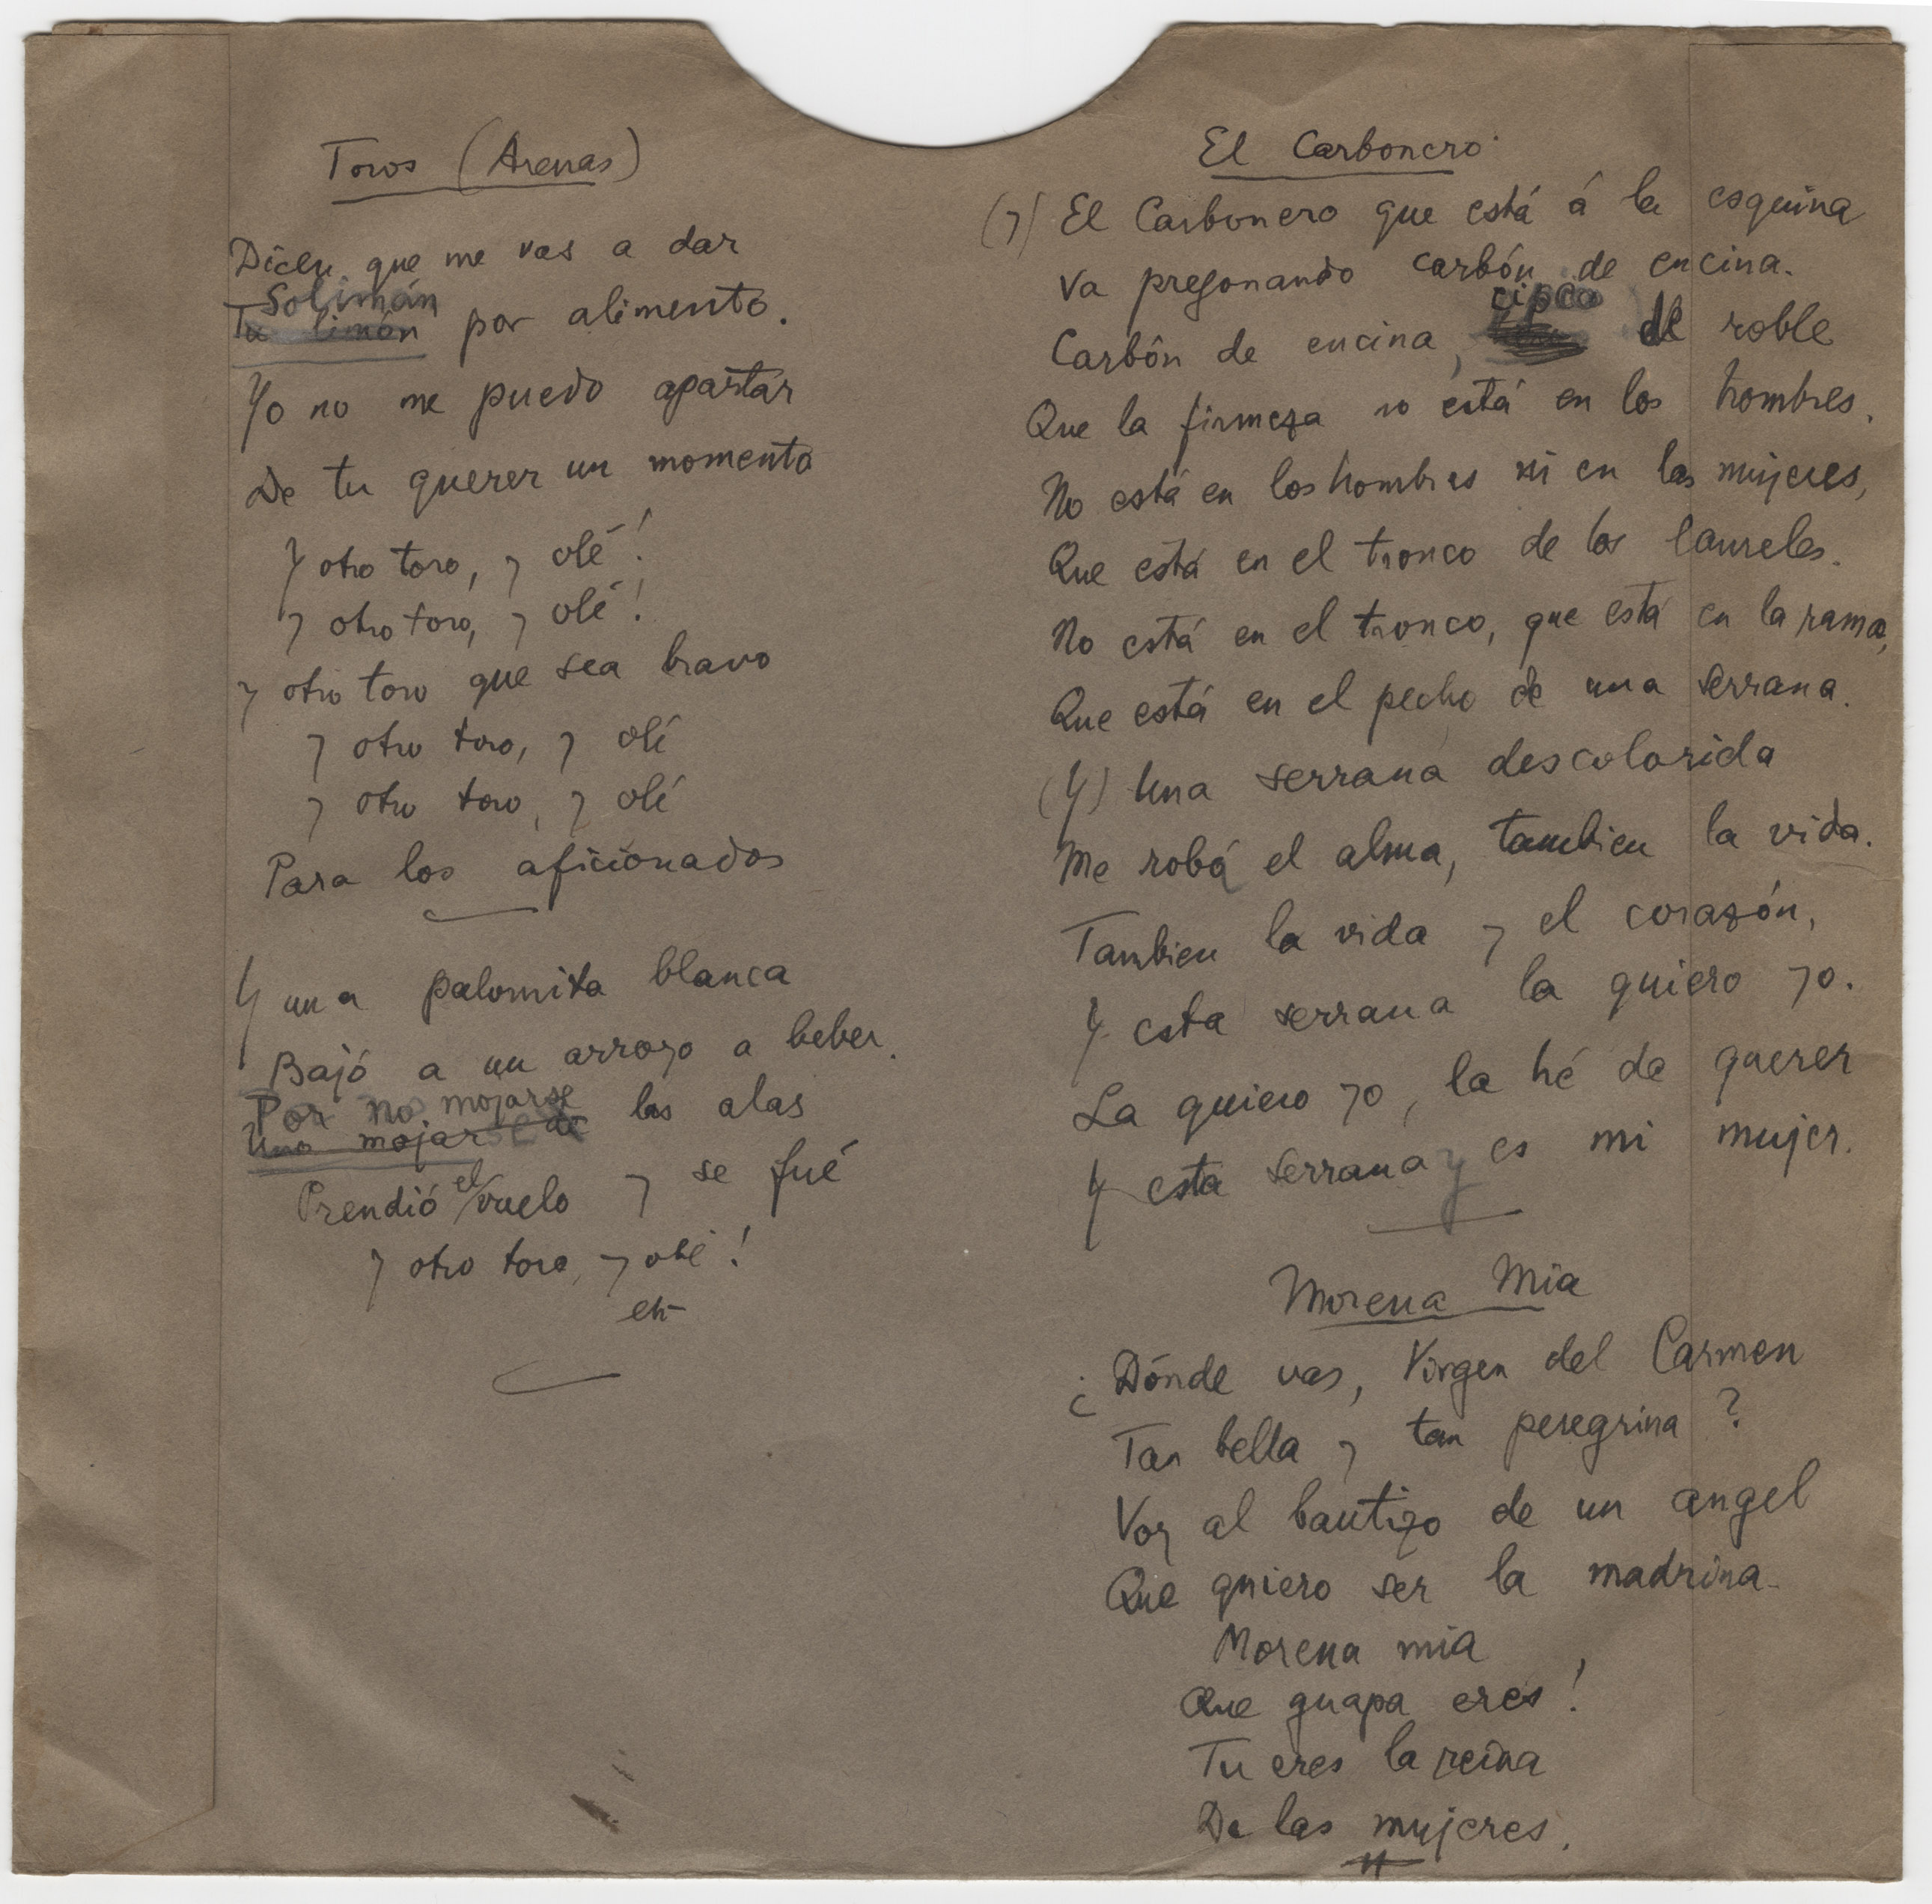 Toros (Arenas)
Dicen que me vas a dar
Solimán
Tu limón por alimento.
Yo no me puedo apartar
De tu querer un momento
Y otro toro, y olé!
y otro toro, y olé!
y otro toro que sea bravo
y otro toro, y olé
y otro toro, y olé
Para los aficionados
Y una palomita blanca
Bajó a un arroyo a beber.
Por no mojarse
Una mojarse de las alas
Prendió el vuelo y se fué
y otro toro, y olé!
etc
El Carbonero
(y) El Carbonero que está á la esquina
Va pregonando carbón de encina.
cisco
Carbón de encina, de roble
Que la firmeza no está en los hombres.
No está en los hombres ni en las mujeres,
Que está en el tronco de los laureles.
No está en el tronco, que está en la rama,
Que está en el pecho de una serrana.
(Y) Una serrana descolorida
Me robó el alma, tambien la vida.
Tambien la vida y el corazón,
Y esta serrana la quiero yo.
La quiero yo, la hé de querer
Y esta serrana y es mi mujer.
Morena Mia
¿Dónde vas, Virgen del Carmen
Tan bella y tan peregrina?
Voy al bautizo de un angel
Que quiero ser la madrina.
Morena mia
Que guapa eres!
Tu eres la reina
De las mujeres.